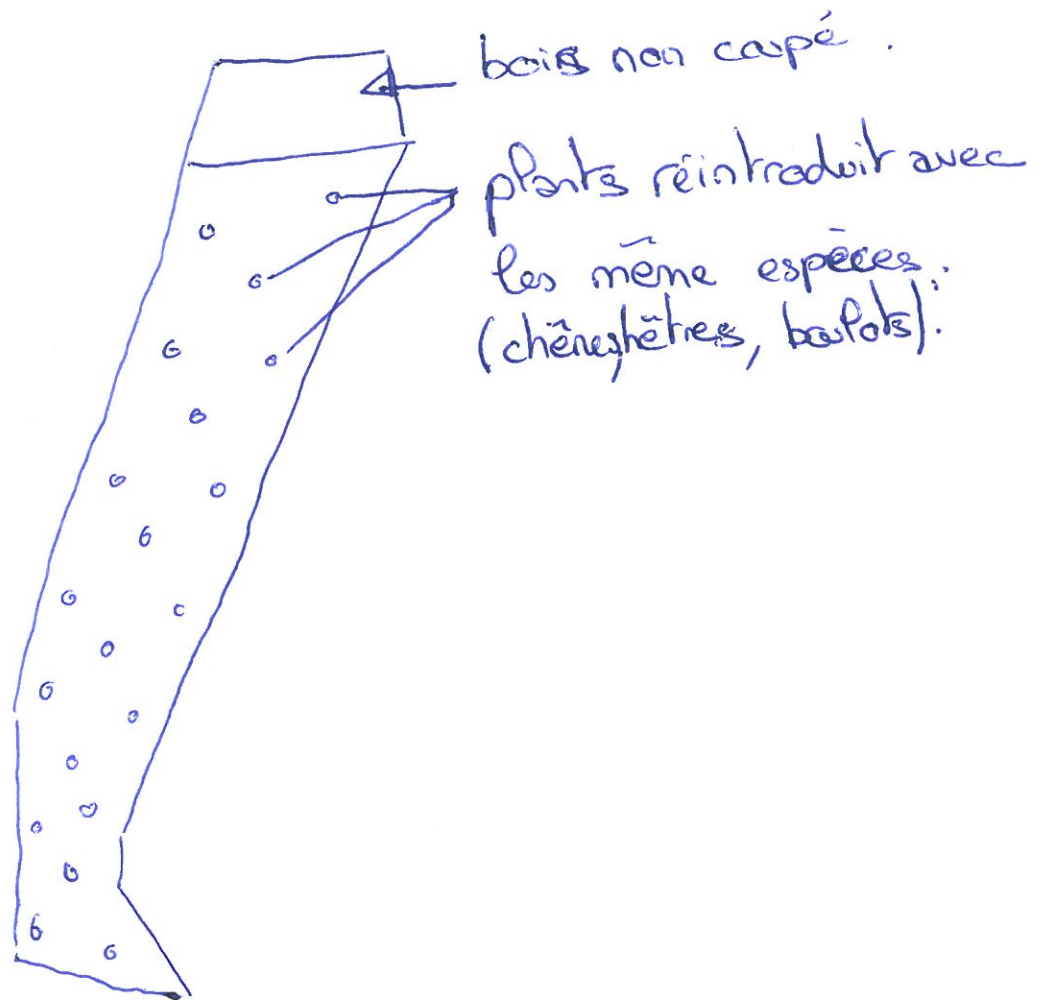 bois non coupé.
plants réintroduit avec
les même espèces.
(chênes, hêtres, boulots).